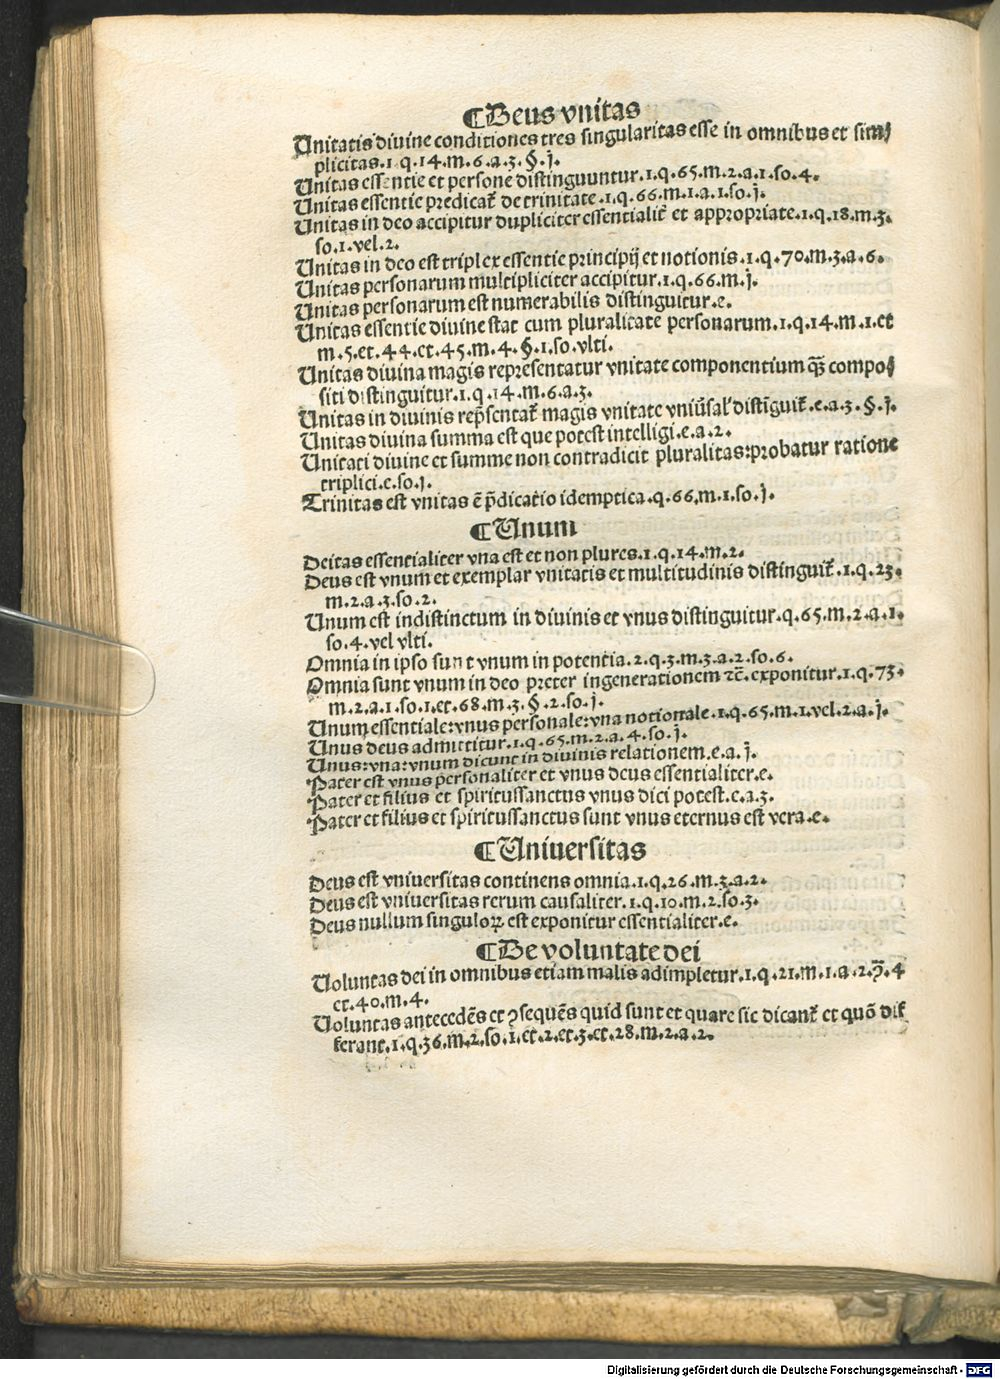 ¶Deus vnitas
Unitatis diuine conditiones tres singularitas esse in omnibus et sim⸗
plicitas.1.q.14.m.6.a.3.§.j.
Unitas essentie et persone distinguuntur.1.q.65.m.2.a.1.so.4.
Unitas essentie predicat᷑ de trinitate.1.q.66.m.1.a.1.so.j.
Unitas in deo accipitur dupliciter essentialit᷑ et appropriate.1.q.18.m.3.
so.1.vel.2.
Unitas in deo est triplex essentie principij et notionis.1.q.70.m.3.a.6.
Unitas personarum multipliciter accipitur.1.q.66.m.j.
Unitas personarum est numerabilis distinguitur.e.
Unitas essentie diuine stat cum pluralitate personarum.1.q.14.m.1.et
m.5.et.44.et.45.m.4.§.1.so.vlti.
Unitas diuina magis representatur vnitate componentium q̃ꝫ compo⸗
siti distinguitur.1.q.14.m.6.a.3.
Unitas in diuinis rep̃sentat᷑ magis vnitate vniũsal' distĩguit᷑.e.a.3.§.j.
Unitas diuina summa est que potest intelligi.e.a.2.
Unitati diuine et summe non contradicit pluralitas:probatur ratione
triplici.e.so.j.
Trinitas est vnitas ẽ p̃dicatio idemptica.q.66.m.1.so.j.
¶Unum
Deitas essentialiter vna est et non plures.1.q.14.m.2.
Deus est vnum et exemplar vnitatis et multitudinis distinguit᷑.1.q.23.
m.2.a.3.so.2.
Unum est indistinctum in diuinis et vnus distinguitur.q.65.m.2.a.1.
so.4.vel vlti.
Omnia in ipso sunt vnum in potentia.2.q.3.m.3.a.2.so.6.
Omnia sunt vnum in deo preter ingenerationem ⁊c̃.exponitur.1.q.73.
m.2.a.1.so.1.et.68.m.3.§.2.so.j.
Unum essentiale:vnus personale:vna notionale.1.q.65.m.1.vel.2.a.j.
Unus deus admittitur.1.q.65.m.2.a.4.so.j.
Unus:vna:vnum dicunt in diuinis relationem.e.a.j.
Pater est vnus personaliter et vnus deus essentialiter.e.
Pater et filius et spiritussanctus vnus dici potest.e.a.3.
Pater et filius et spiritussanctus sunt vnus eternus est vera.e.
¶Uniuersitas
Deus est vniuersitas continens omnia.1.q.26.m.3.a.2.
Deus est vniuersitas rerum causaliter.1.q.10.m.2.so.3.
Deus nullum singuloꝝ est exponitur essentialiter.e.
¶De voluntate dei
Uoluntas dei in omnibus etiam malis adimpletur.1.q.21.m.1.a.2.ꝯ̃.4
et.40.m.4.
Uoluntas antecedẽs et ꝯsequẽs quid sunt et quare sic dicant᷑ et quõ dif
ferant.1.q.36.m.2.so.1.et.2.et.3.et.28.m.2.a.2.
Digitalisierung gefördert durch die Deutsche Forschungsgemeinschaft - DFG